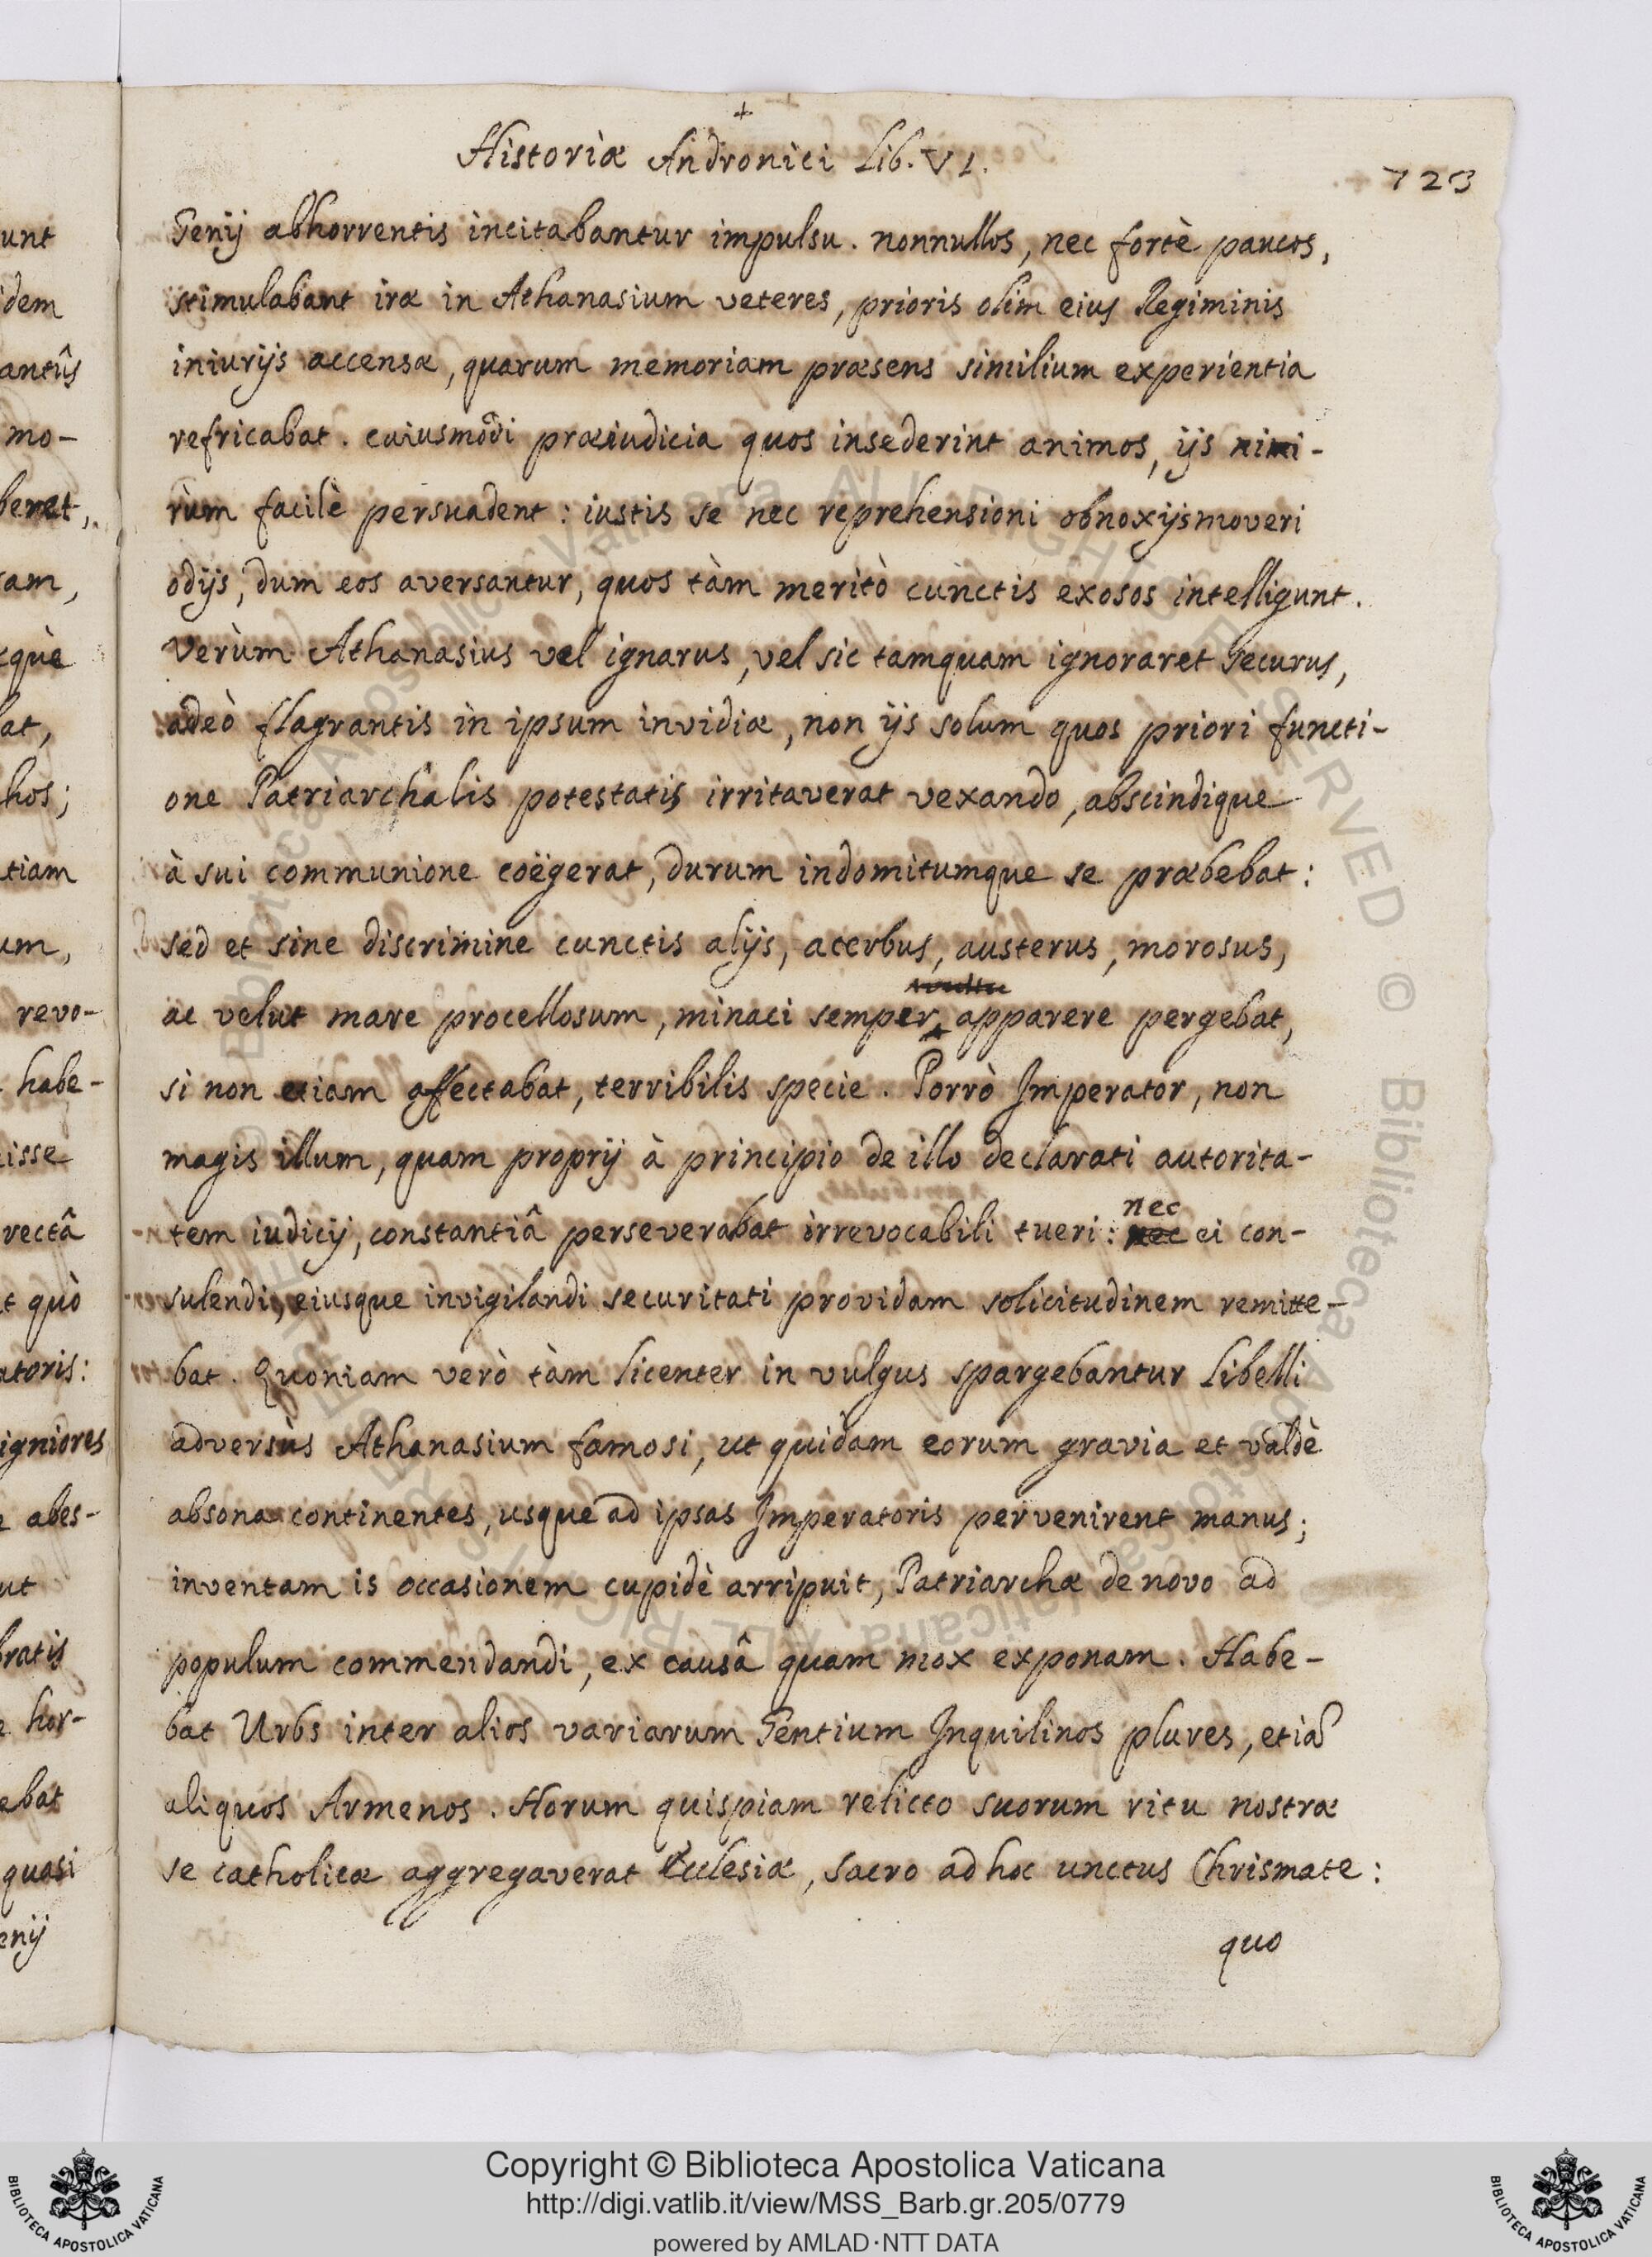 Historiæ Andronici Lib. VI.
723
Genij abhorrentis incitabantur impulsu. nonnullos, nec fortè paucos,
stimulabant iræ in Athanasium veteres, prioris olim eius Regiminis
iniurijs accensæ, quarum memoriam præsens similium experientia
refricabat. cuiusmodi præiudicia quos insederint animos, ijs nimi-
rùm facilè persuadent: iustis se nec reprehensioni obnoxijs moveri
odijs, dum eos aversantur, quos tàm meritò cunctis exosos intelligunt.
Verùm Athanasius vel ignarus, vel sic tamquam ignoraret securus,
adeò flagrantis in ipsum invidiæ, non ijs solum quos priori functi-
one Patriarchalis potestatis irritaverat vexando, abscindique
à sui communione coëgerat, durum indomitumque se præbebat:
sed et sine discrimine cunctis alijs, acerbus, austerus, morosus,
ac velut mare procellosum, minaci semper apparere pergebat,
si non etiam affectabat, terribilis specie. Porrò Imperator, non
magis illum, quam proprij à principio de illo declarati autorita-
tem iudicij, constantiâ perseverabat irrevocabili tueri: nec ei con-
sulendi, eiusque invigilandi securitati providam solicitudinem remitte-
bat. Quoniam verò tàm licenter in vulgus spargebantur libelli
adversùs Athanasium famosi, ut quidam eorum gravia et valdè
absona continentes, usque ad ipsas Imperatoris pervenirent manus;
inventam is occasionem cupidè arripuit, Patriarchæ de novo ad
populum commendandi, ex causâ quam mox exponam. Habe-
bat Urbs inter alios variarum Gentium Inquilinos plures, etiã
aliquos Armenos. Horum quispiam relicto suorum ritu nostræ
se catholicæ aggregaverat Ecclesiæ, sacro ad hoc unctus Chrismate:
quo
Copyright © Biblioteca Apostolica Vaticana
http://digi.vatlib.it/view/MSS_Barb.gr.205/0779
powered by AMLAD·NTT DATA